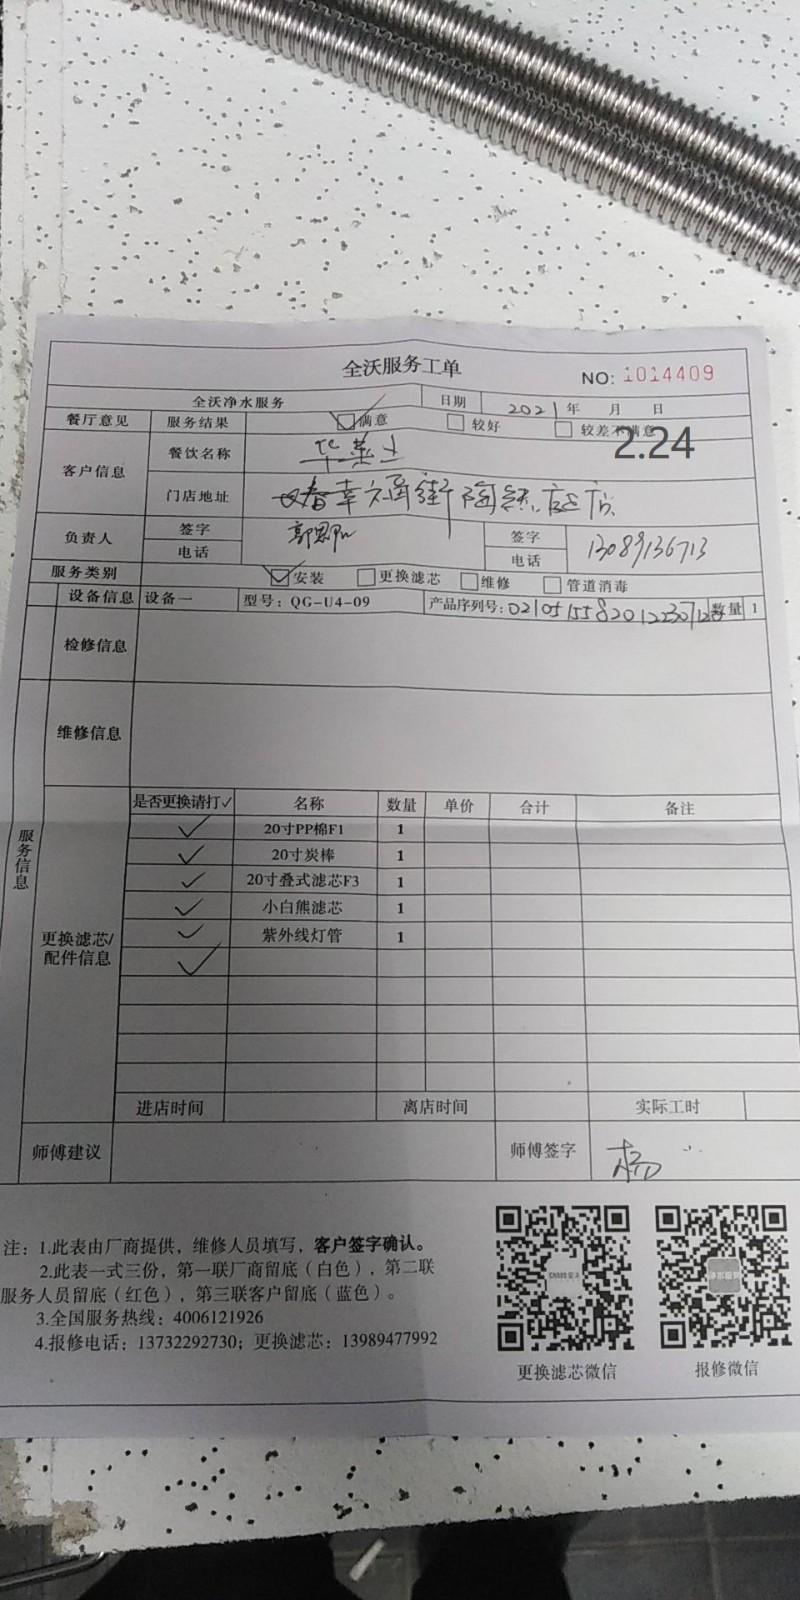 全沃服务工单
NO: 1014409
全沃净水服务 日期 2021年 月 日
2.24
餐厅意见 服务结果 满意 较好 较差不满意
客户信息 餐饮名称 华莱士
门店地址 幸福街陶然居店
负责人 签字 签字
电话 电话 13089136713
服务类别 安装 更换滤芯 维修 管道消毒
设备信息 设备一 型号：QG-U4-09 产品序列号： 数量 1
检修信息
维修信息
服务信息
更换滤芯/配件信息
是否更换请打✓ 名称 数量 单价 合计 备注
✓ 20寸PP棉F1 1
✓ 20寸炭棒 1
✓ 20寸叠式滤芯F3 1
✓ 小白熊滤芯 1
✓ 紫外线灯管 1
✓
进店时间 离店时间 实际工时
师傅建议 师傅签字 杨
注：1.此表由厂商提供，维修人员填写，客户签字确认。
2.此表一式三份，第一联厂商留底（白色），第二联
服务人员留底（红色），第三联客户留底（蓝色）。
3.全国服务热线：4006121926
4.报修电话：13732292730；更换滤芯：13989477992
更换滤芯微信 报修微信